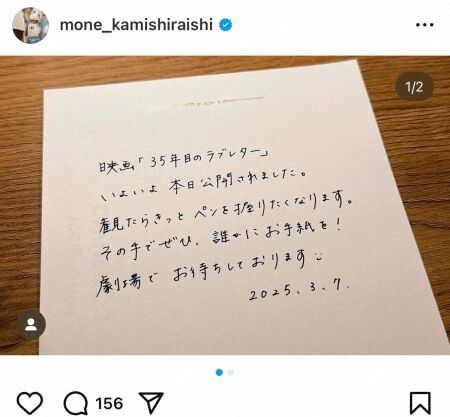 mone_kamishiraishi
1/2
映画「35年目のラブレター」
いよいよ 本日公開されました。
観たらきっと ペンを握りたくなります。
その手でぜひ、誰かにお手紙を!
劇場で お待ちしております
2025.3.7.
156